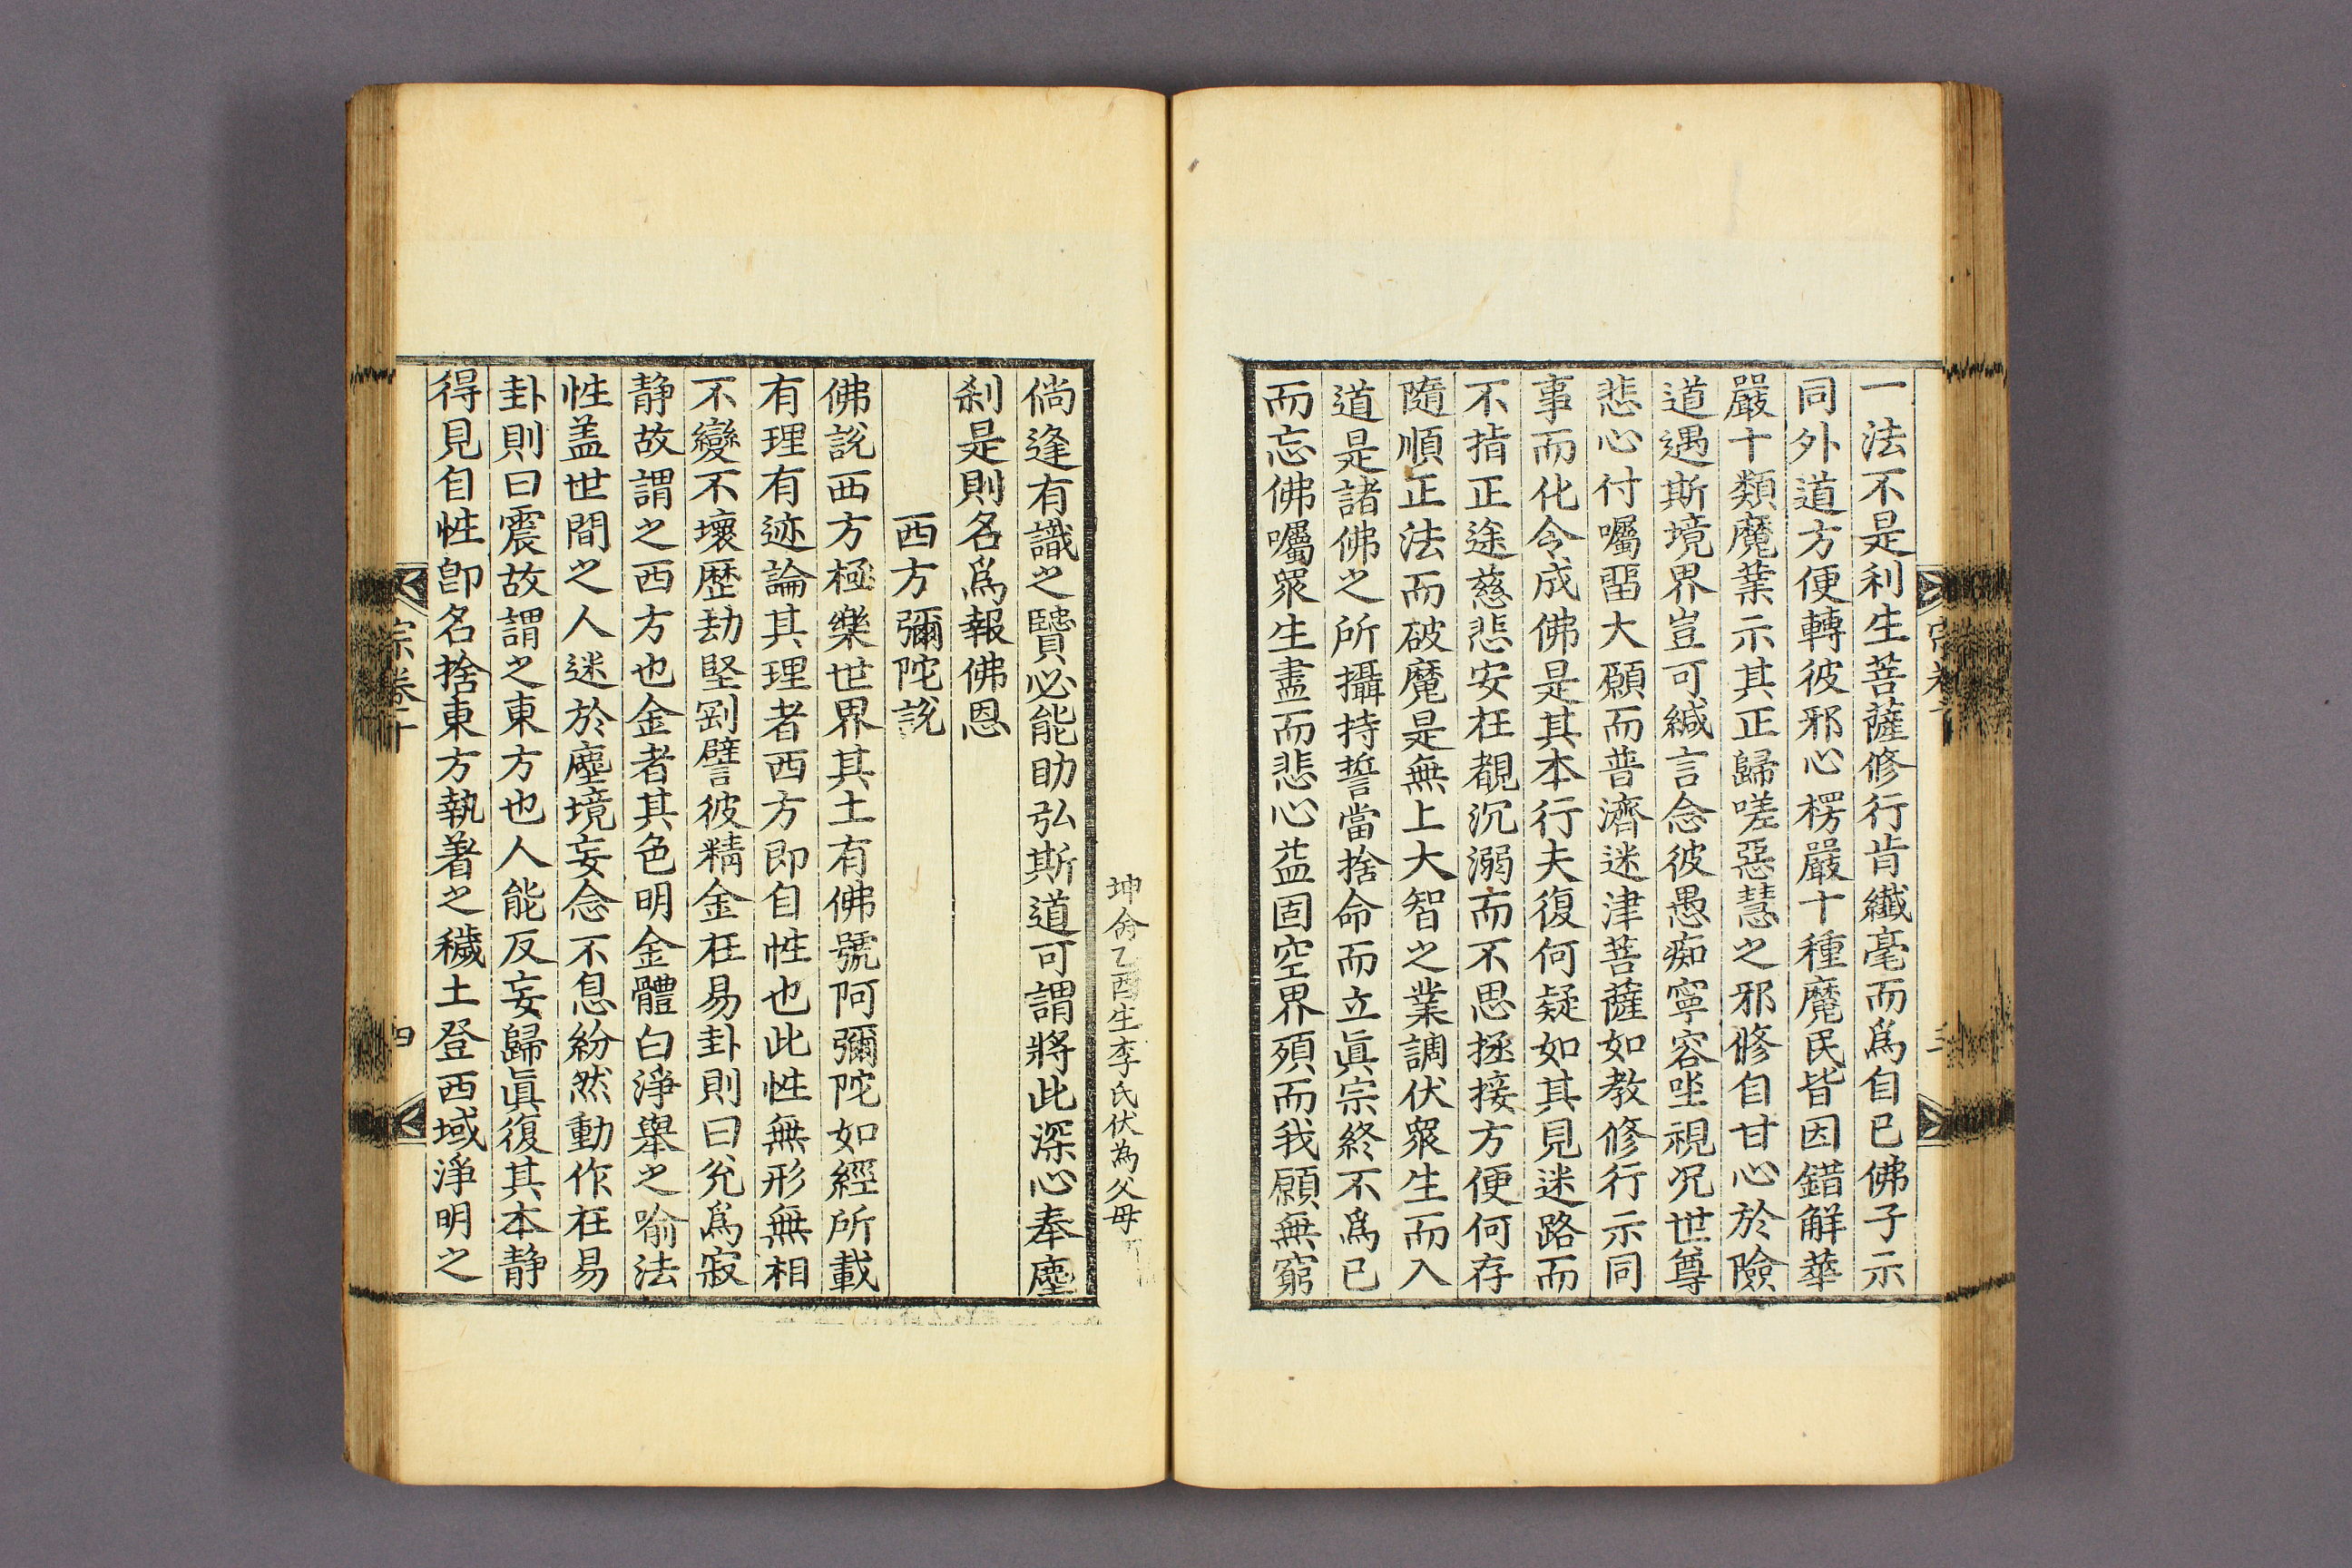 一法不是利生菩薩修行肯纖毫而爲自已佛子示
同外道方便轉彼邪心楞嚴十種魔民皆因錯解華
嚴十類魔業示其正歸嗟惡慧之邪修自甘心於險
道遇斯境界豈可緘言念彼愚痴寧容坐視况世尊
悲心付囑畱大願而普濟迷津菩薩如教修行示同
事而化令成佛是其本行夫復何疑如其見迷路而
不指正途慈悲安在覩沉溺而不思拯接方便何存
隨順正法而破魔是無上大智之業調伏眾生而入
道是諸佛之所攝持誓當捨命而立眞宗終不爲已
而忘佛囑眾生盡而悲心益固空界殞而我願無窮
坤命乙酉生李氏伏為父母
倘逢有識之賢必能助弘斯道可謂將此深心奉塵
刹是則名爲報佛恩
西方彌陀說
佛說西方極樂世界其土有佛號阿彌陀如經所載
有理有迹論其理者西方即自性也此性無形無相
不變不壞歷劫堅剛譬彼精金在易卦則曰兊爲寂
静故謂之西方也金者其色明金體白淨舉之喻法
性盖世間之人迷於塵境妄念不息紛然動作在易
卦則曰震故謂之東方也人能反妄歸眞復其本静
得見自性卽名捨東方執着之穢土登西域淨明之
宗卷十
四